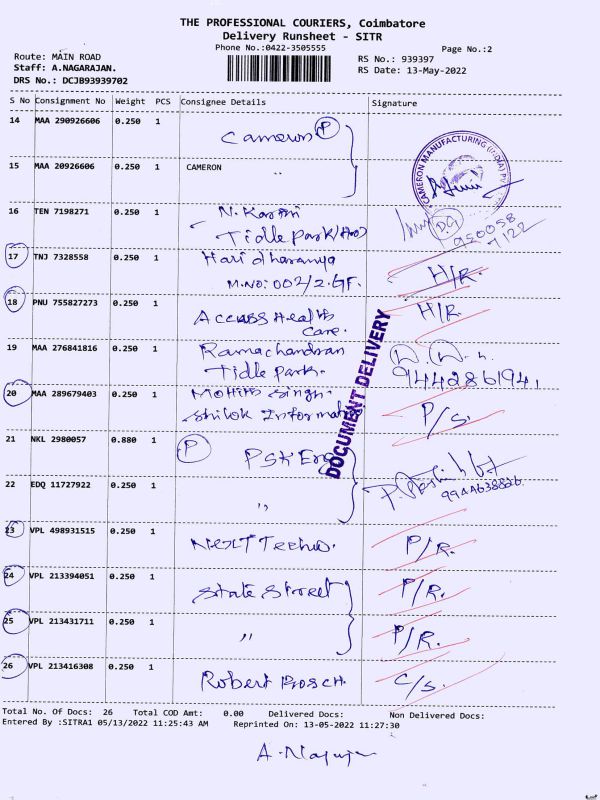 THE PROFESSIONAL COURIERS, Coimbatore
Delivery Runsheet - SITR
Phone No.:0422-3505555
Page No.:2
Route: MAIN ROAD
RS No.: 939397
Staff: A.NAGARAJAN.
RS Date: 13-May-2022
DRS No.: DCJB93939702
S No Consignment No Weight PCS Consignee Details Signature
14 MAA 290926606 0.250 1 Cameron P
CAMERON MANUFACTURING (INDIA)
15 MAA 20926606 0.250 1 CAMERON "
16 TEN 7198271 0.250 1 N. Karthi
Tidle Park
17 TNJ 7328558 0.250 1 Hari dharanya H/R.
M.NO: 002/2.GF.
18 PNU 755827273 0.250 1 Access Health H/R.
Care.
19 MAA 276841816 0.250 1 Ramachandran
Tidle Park. 9442861941
20 MAA 289679403 0.250 1 Mohith Singh. P/S.
Shilok
DOCUMENT DELIVERY
21 NKL 2980057 0.880 1 P PSK Eng
22 EDQ 11727922 0.250 1 "
23 VPL 498931515 0.250 1 Next Techno. P/R.
24 VPL 213394051 0.250 1 State Street P/R.
25 VPL 213431711 0.250 1 " P/R.
26 VPL 213416308 0.250 1 Robert Bosch. C/S.
Total No. Of Docs: 26 Total COD Amt: 0.00 Delivered Docs: Non Delivered Docs:
Entered By :SITRA1 05/13/2022 11:25:43 AM Reprinted On: 13-05-2022 11:27:30